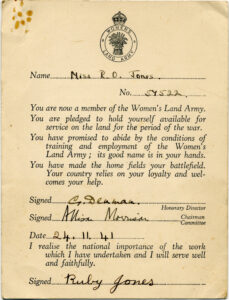 WOMEN'S
LAND ARMY
Name Miss R. O. Jones.
No. 54522
You are now a member of the Women's Land Army.
You are pledged to hold yourself available for
service on the land for the period of the war.
You have promised to abide by the conditions of
training and employment of the Women's
Land Army ; its good name is in your hands.
You have made the home fields your battlefield.
Your country relies on your loyalty and wel-
comes your help.
Signed G. Denman.
Honorary Director
Signed
Chairman
Committee
Date 24. 11. 41
I realise the national importance of the work
which I have undertaken and I will serve well
and faithfully.
Signed Ruby Jones